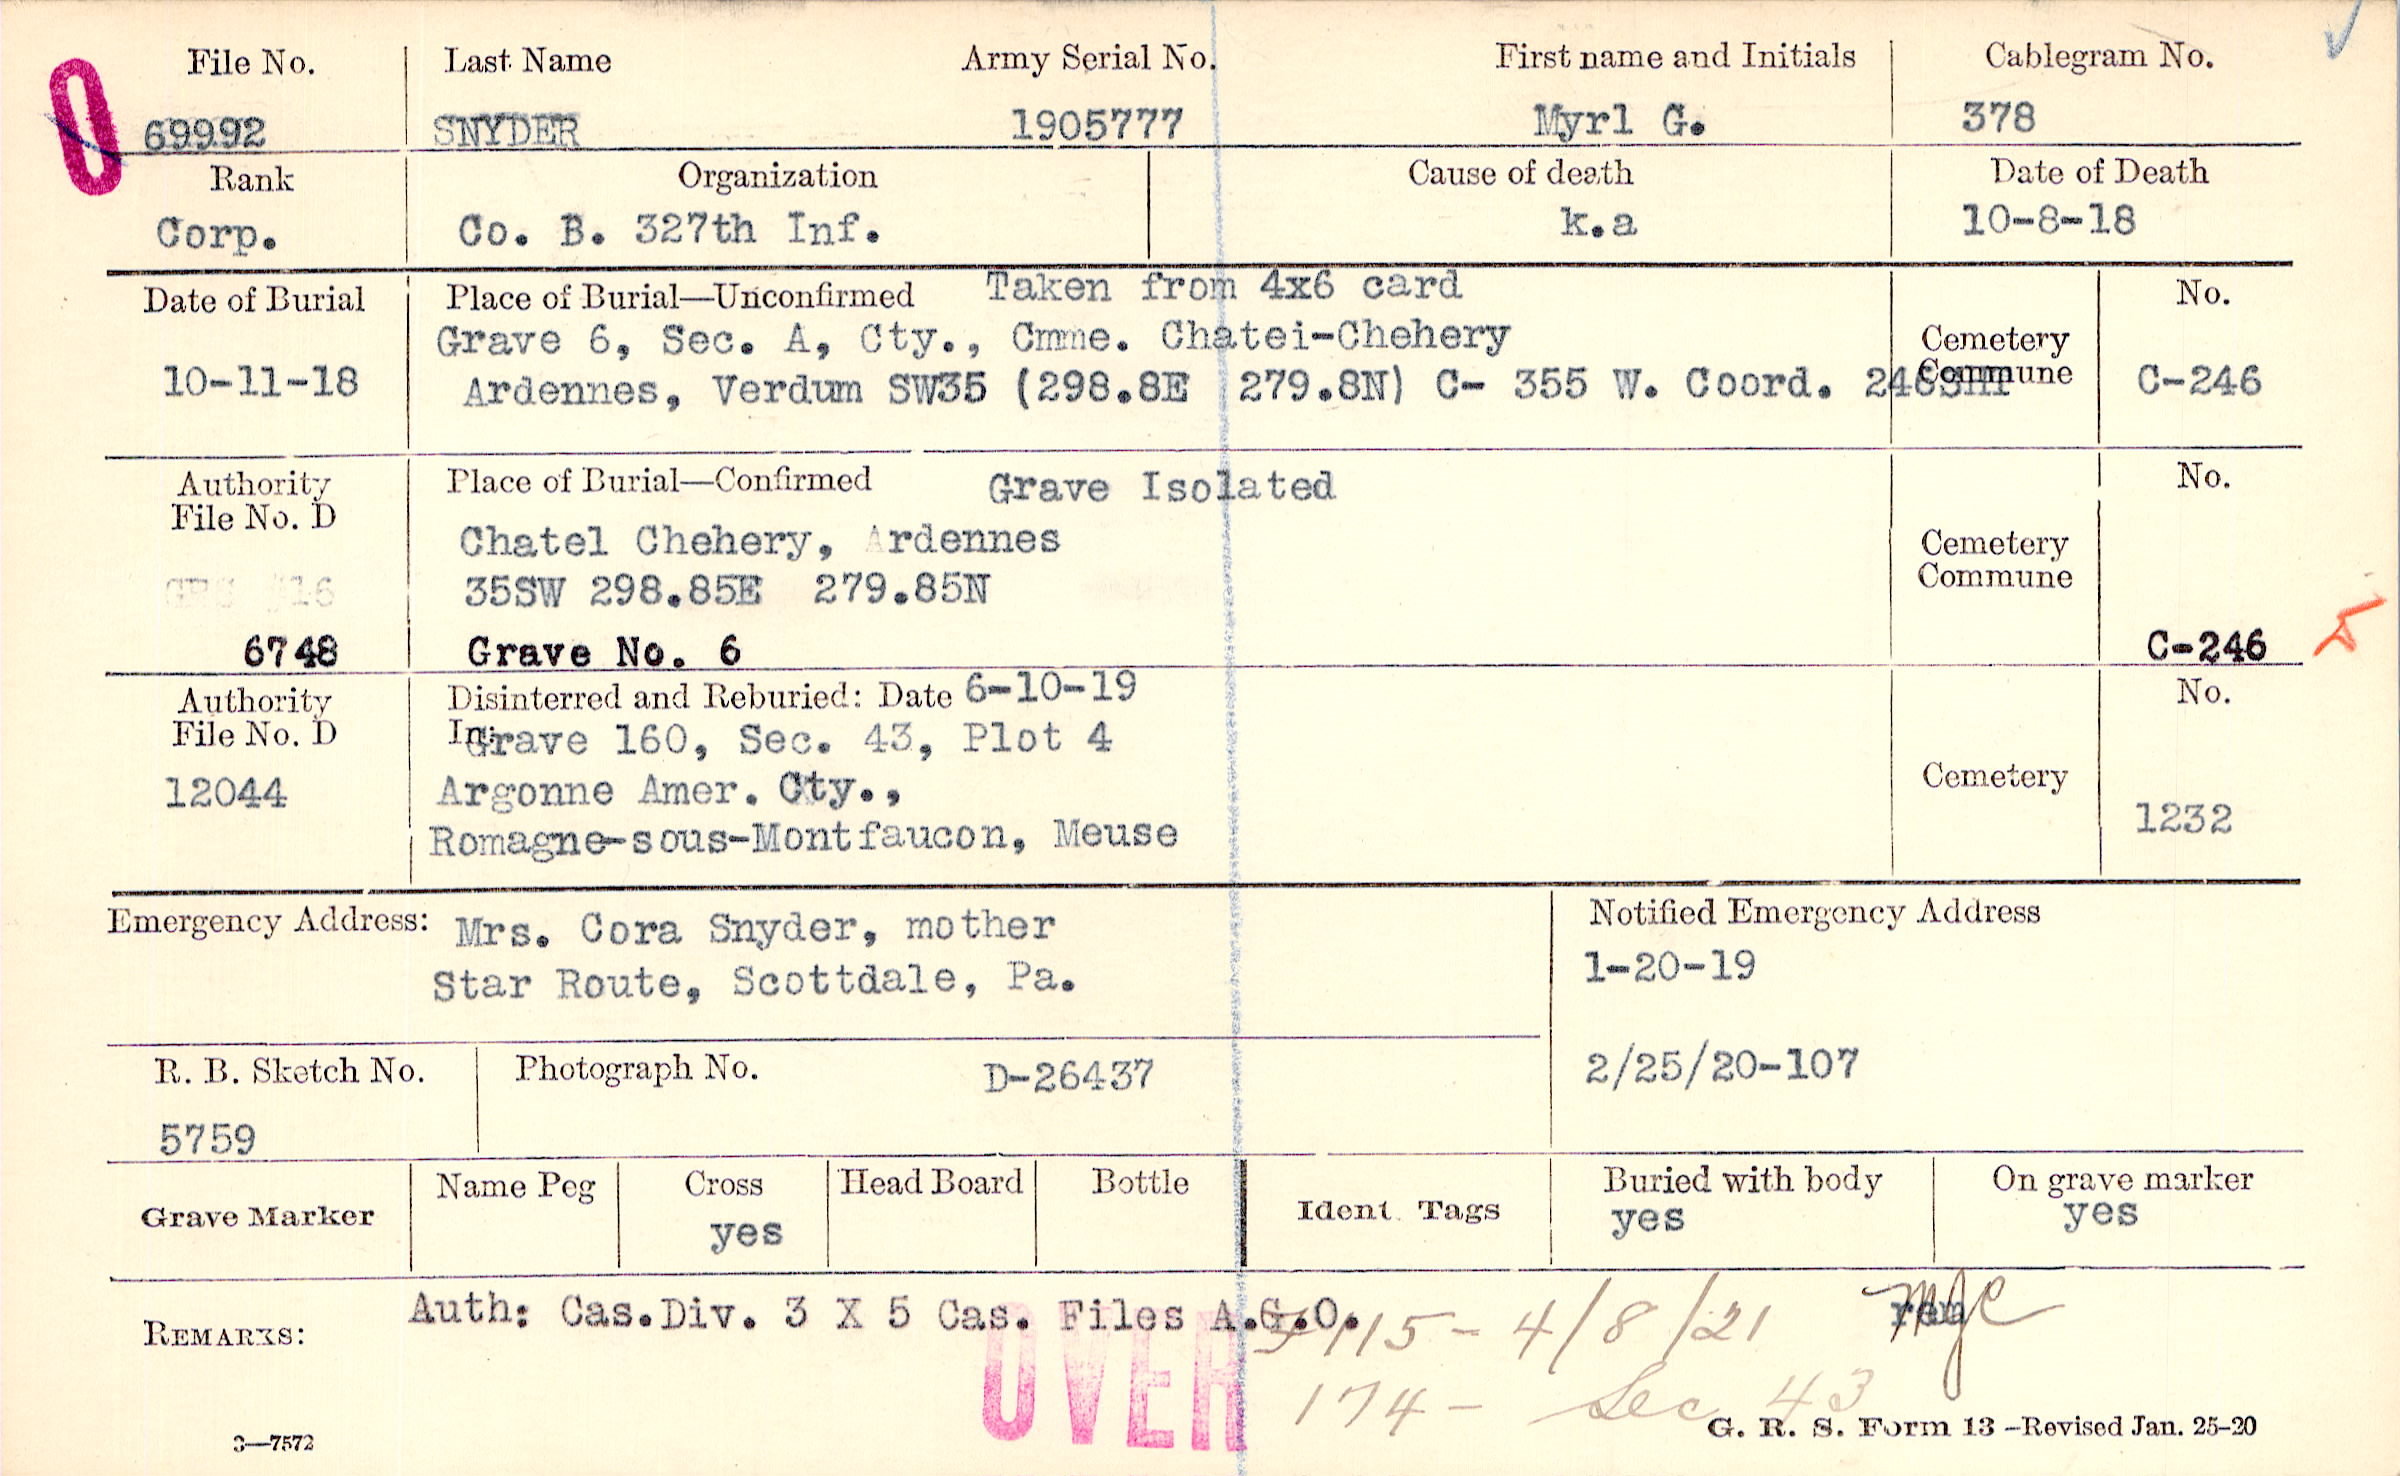 File No. Last Name Army Serial No. First name and Initials Cablegram No.
0 69992 SNYDER 1905777 Myrl G. 378
Rank Organization Cause of death Date of Death
Corp. Co. B. 327th Inf. k.a 10-8-18
Date of Burial Place of Burial—Unconfirmed Taken from 4x6 card No.
Grave 6, Sec. A, Cty., Cmne. Chatei-Chehery Cemetery
10-11-18 Ardennes, Verdum SW35 (298.8E 279.8N) C- 355 W. Coord. Commune C-246
Authority Place of Burial—Confirmed Grave Isolated No.
File No. D
Chatel Chehery, Ardennes Cemetery
35SW 298.85E 279.85N Commune
6748 Grave No. 6 C-246
Authority Disinterred and Reburied: Date 6-10-19 No.
File No. D In: Grave 160, Sec. 43, Plot 4
12044 Argonne Amer. Cty., Cemetery
Romagne-sous-Montfaucon, Meuse 1232
Emergency Address: Mrs. Cora Snyder, mother Notified Emergency Address
Star Route, Scottdale, Pa. 1-20-19
R. B. Sketch No. Photograph No. D-26437 2/25/20-107
5759
Grave Marker Name Peg Cross Head Board Bottle Ident. Tags Buried with body On grave marker
yes yes yes
REMARKS: Auth: Cas.Div. 3 X 5 Cas. Files A.G.O. 115 - 4/8/21
OVER 174 - Sec 43
3—7572 G. R. S. Form 13 -Revised Jan. 25-20